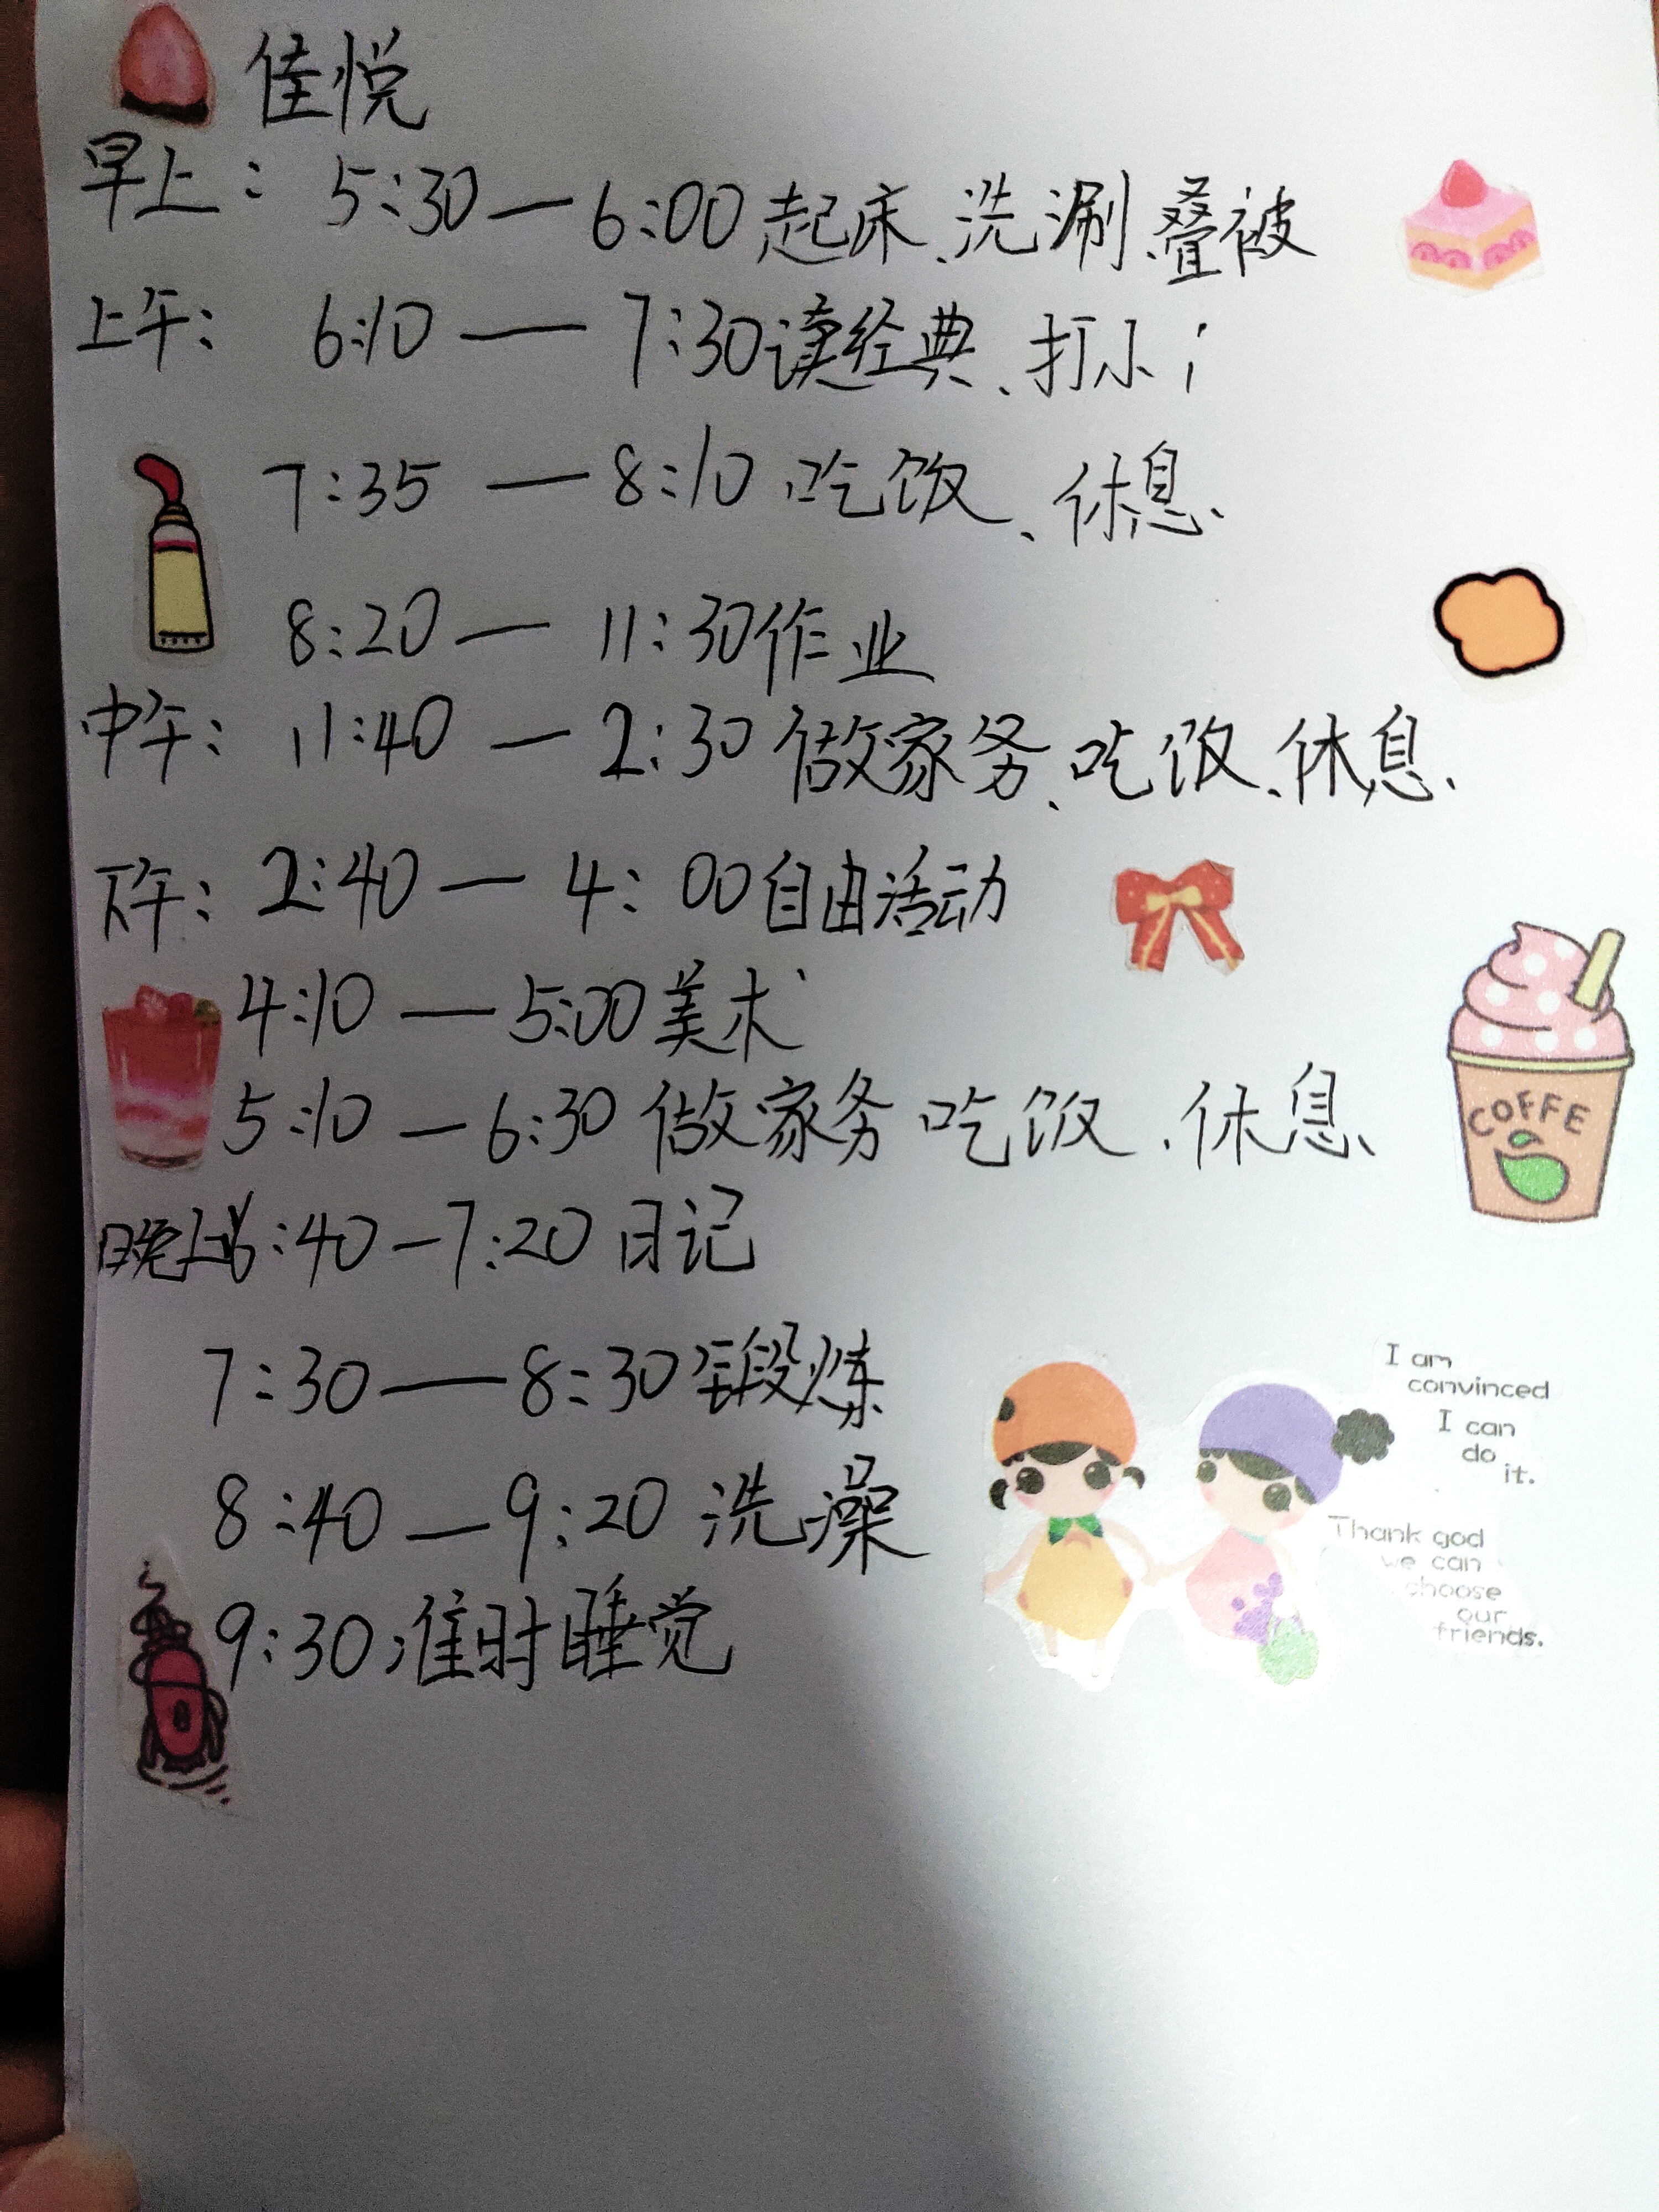 佳悦
早上: 5:30—6:00起床、洗涮、叠被
上午: 6:10—7:30读经典、打小i
7:35—8:10吃饭、休息、
8:20—11:30作业
中午: 11:40—2:30做家务、吃饭、休息、
下午: 2:40—4:00自由活动
4:10—5:00美术
5:10—6:30做家务 吃饭、休息、
晚上6:40—7:20日记
7:30—8:30锻炼
8:40—9:20洗澡
9:30准时睡觉
COFFE
I am
convinced
I can
do
it.
Thank god
we can
choose
our
friends.